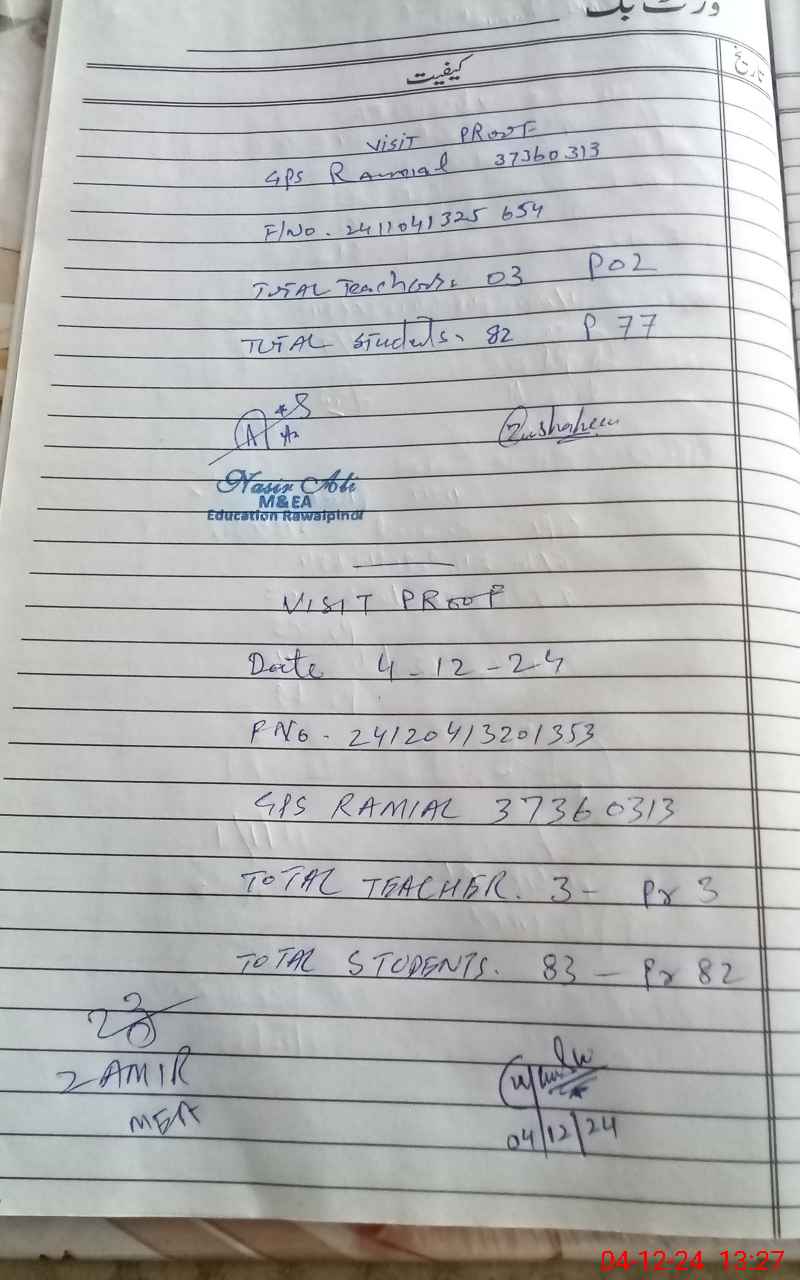 وزٹ بک
کیفیت
تاریخ
VISIT PROOF
GPS Ramial 37360313
F/No. 2411041325 654
TOTAL Teachers. 03 P02
TOTAL Students. 82 P 77
Nasir Ali
M&EA
Education Rawalpindi
VISIT PROOF
Date 4-12-24
FNo. 24120413201353
GPS RAMIAL 37360313
TOTAL TEACHER. 3- Pr 3
TOTAL STUDENTS. 83 - Pr 82
ZAMIR
MEA
04/12/24
04-12-24 13:27